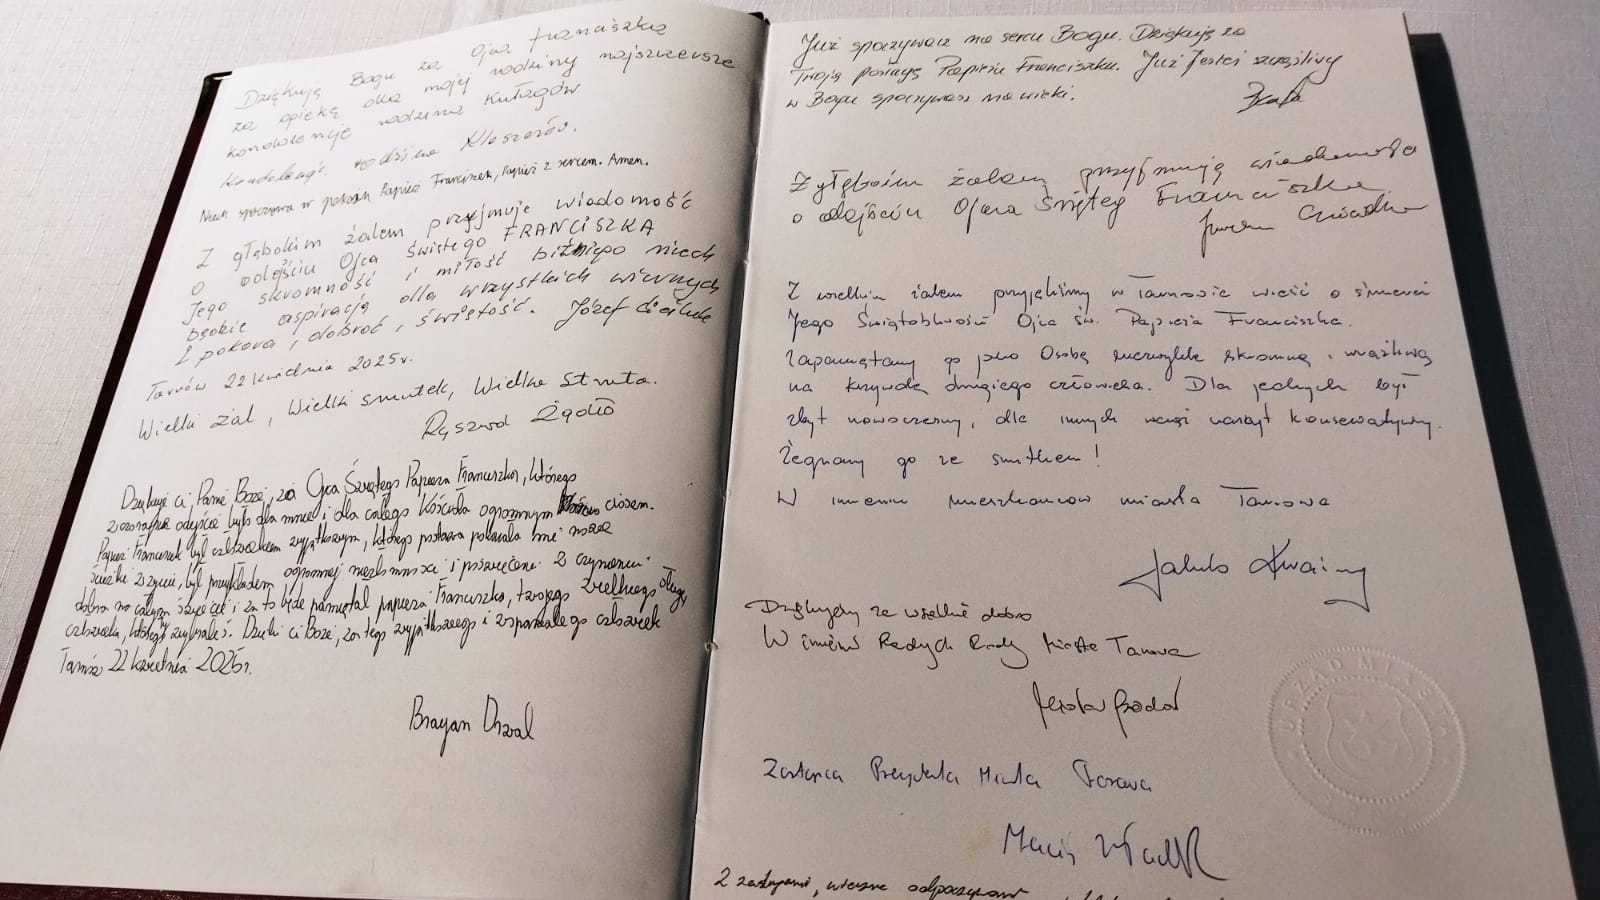 Dziękuję Bogu za Ojca Franciszka
za opiekę dla mojej rodziny najszczersze
kondolencje rodzina Kułagów
Kondolencje rodzina Kloszerów.
Niech spoczywa w pokoju Papież Franciszek, Papież z sercem. Amen.
Z głębokim żalem przyjmuje wiadomość
o odejściu Ojca świetego FRANCISZKA
Jego skromność i miłość bliźniego niech
będzie aspiracją dla wszystkich wiernych
I pokora, dobroć, świętość. Józef
Tarnów 22 kwietnia 2025r.
Wielki żal, Wielki smutek, Wielka Strata.
Ryszard Żądło
Dziękuję ci Panie Boże, za Ojca Świętego Papieża Franciszka, którego
wczorajsze odejście było dla mnie i dla całego Kościoła ogromnym ciosem.
Papież Franciszek był człowiekiem wyjątkowym, którego postawa pokazała mi nowe
ścieżki w życiu, był przykładem ogromnej i poświęcenia w czynieniu
dobra na całym świecie i za to będę pamiętał papieża Franciszka, twojego wielkiego sługę
człowieka, którego wybrałeś. Dzięki ci Boże, za tego wyjątkowego i wspaniałego człowieka
Tarnów, 22 kwietnia 2025r.
Brayan Chzal
Już spoczywasz na sercu Bogu. Dziękuję za
Twoją posługę Papieżu Franciszku. Już jesteś szczęśliwy
w Bogu spoczywasz na wieki.
Z głębokim żalem przyjmuję wiadomość
o odejściu Ojca Świętego Franciszka
Z wielkim żalem przyjęliśmy w Tarnowie wieść o śmierci
Jego Świątobliwości Ojca św. Papieża Franciszka.
Zapamiętamy go jako Osobę niezwykle skromną i wrażliwą
na krzywdę drugiego człowieka. Dla jednych był
zbyt nowoczesny, dla innych wciąż nazbyt konserwatywny.
Żegnamy go ze smutkiem!
W imieniu mieszkańców miasta Tarnowa
Jakub Kwaśny
Dziękujemy za wielkie dobro
W imieniu Radnych Rady Miasta Tarnowa
Zastępca Prezydenta Miasta Tarnowa
Maciej Włodek
URZĄD MIASTA
wieczne odpoczywanie